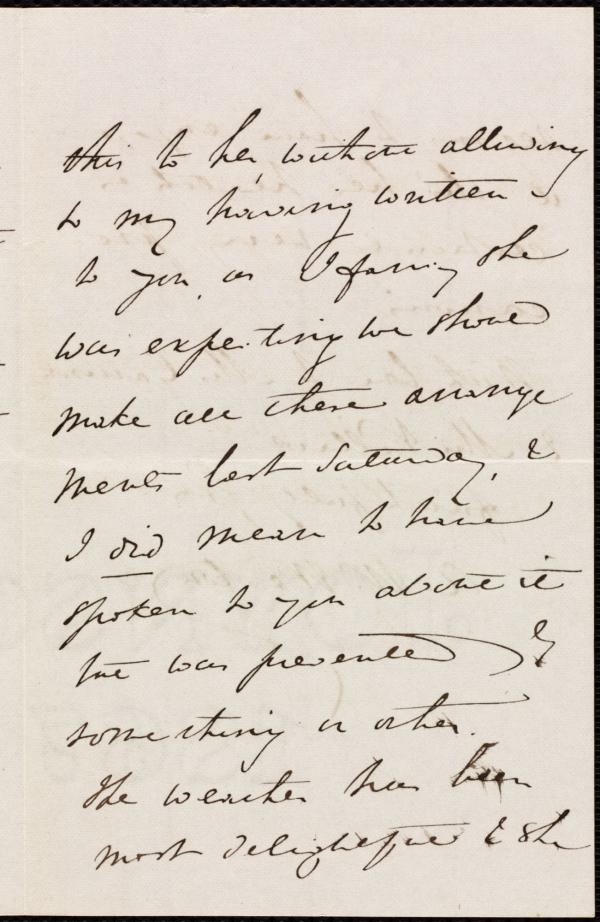 this to her, without alluding
to my having written
to you, as I fancy she
was expecting we should
make all these arrange
ments last Saturday, &
I did mean to have
spoken to you about it
but was prevented by
something or other.
The weather has been
most delightful & she